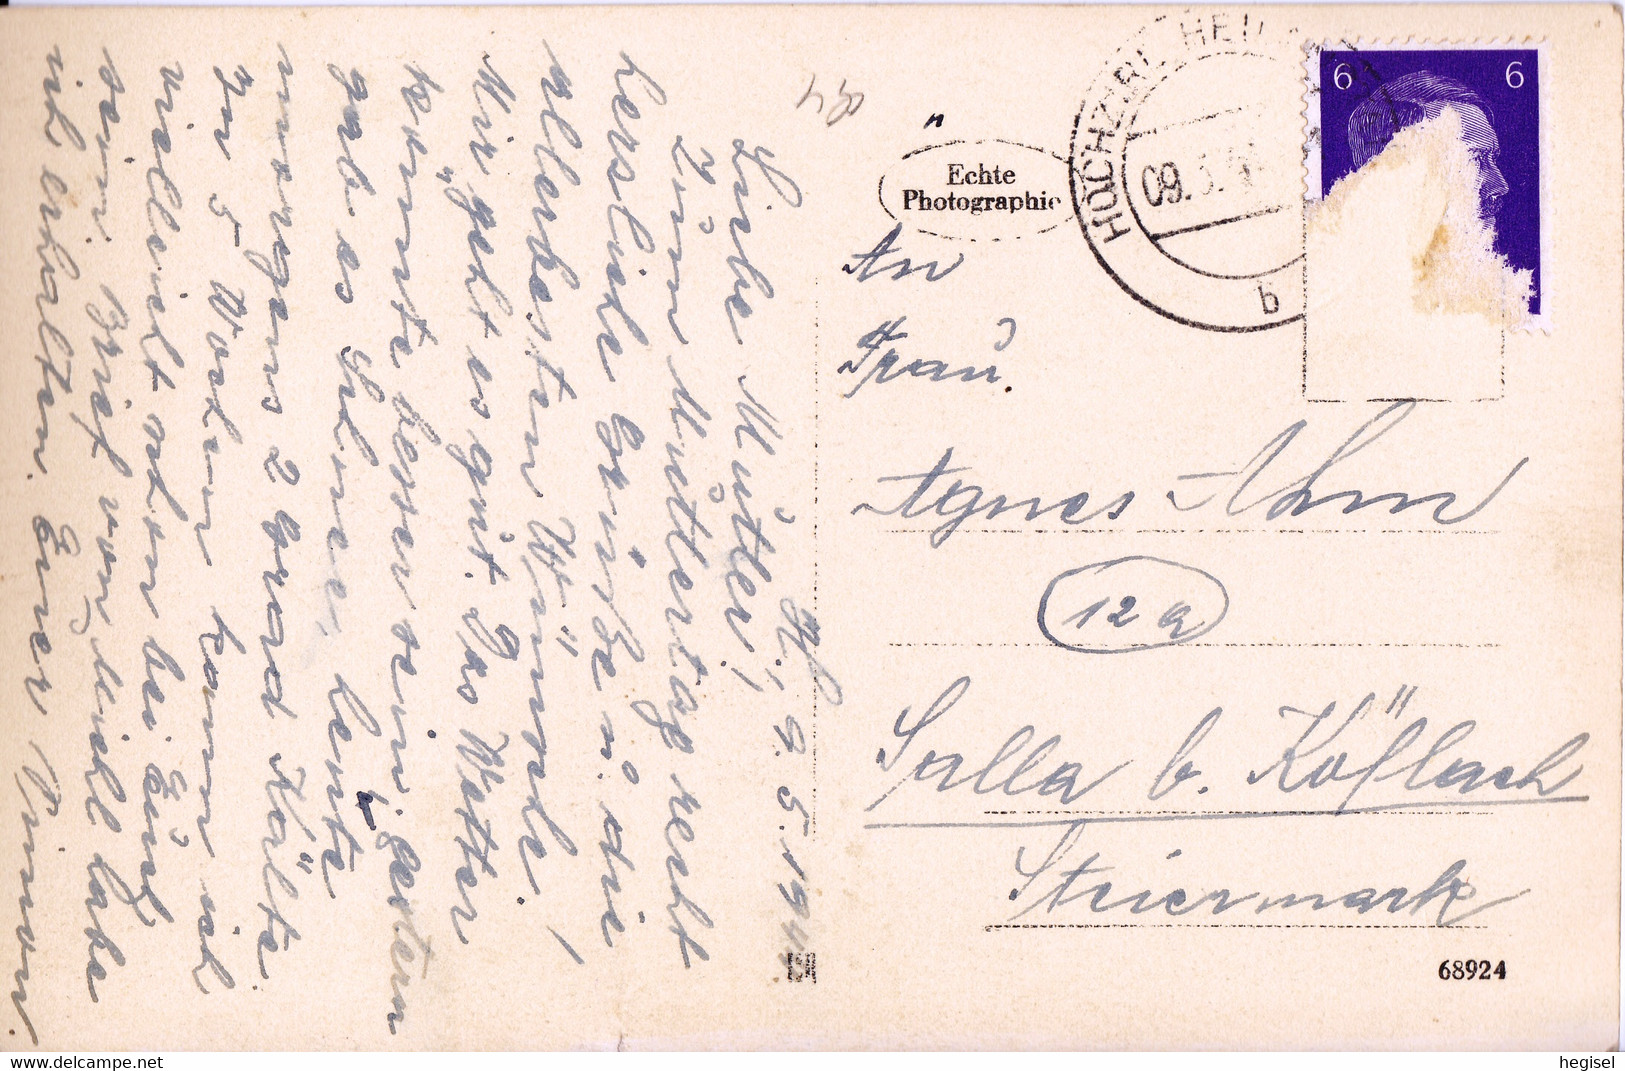 H., 9.5.1944
Liebe Mutter!
Zum Muttertage recht
herzliche Grüße u. die
allerbesten Wünsche!
Mir geht es gut. Das Wetter
könnte besser sein. Gestern
gab es Schnee, heute
morgens 2 Grad Kälte.
In 5 Wochen kann ich
vielleicht schon bei Euch
sein. Brief von Michl habe
ich erhalten. Euer Simon.
44
Echte
Photographie
HOCHZIRL HEIL
09.5.
b
6 6
An
Frau
Agnes Ahm
12a
Salla b. Köflach
Steiermark
68924
hegisel